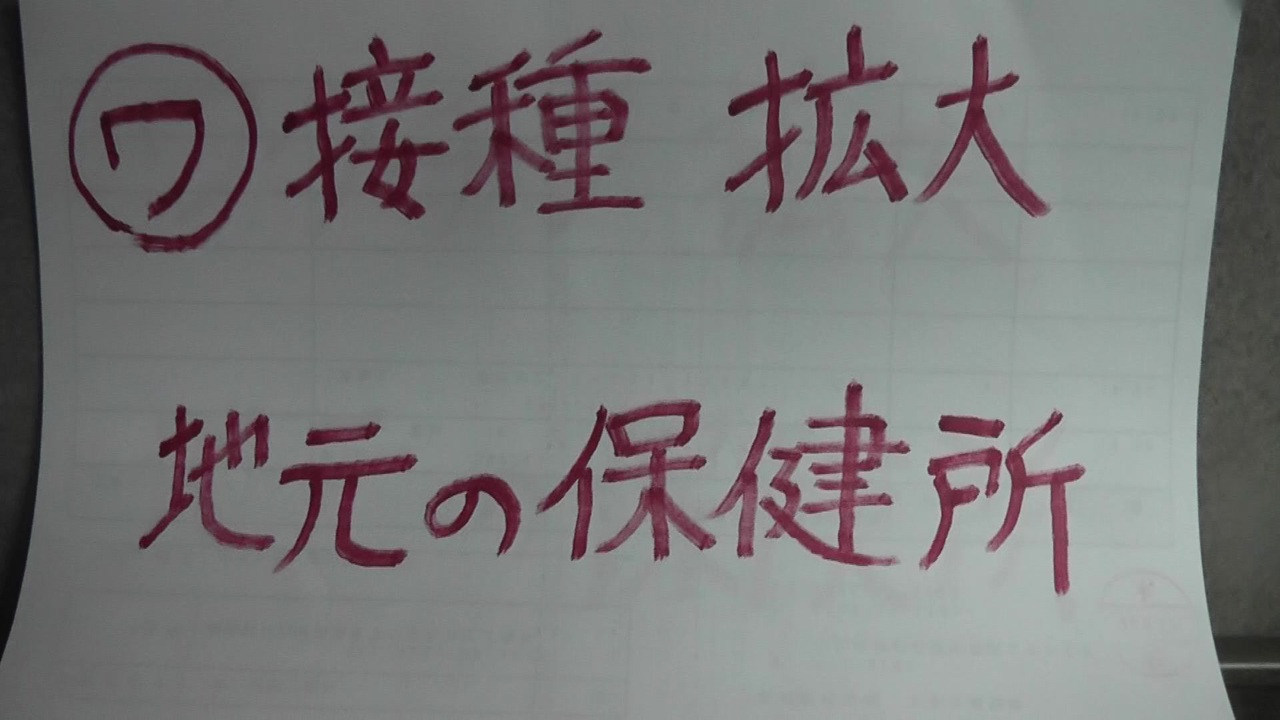 ㋻接種 拡大
地元の保健所